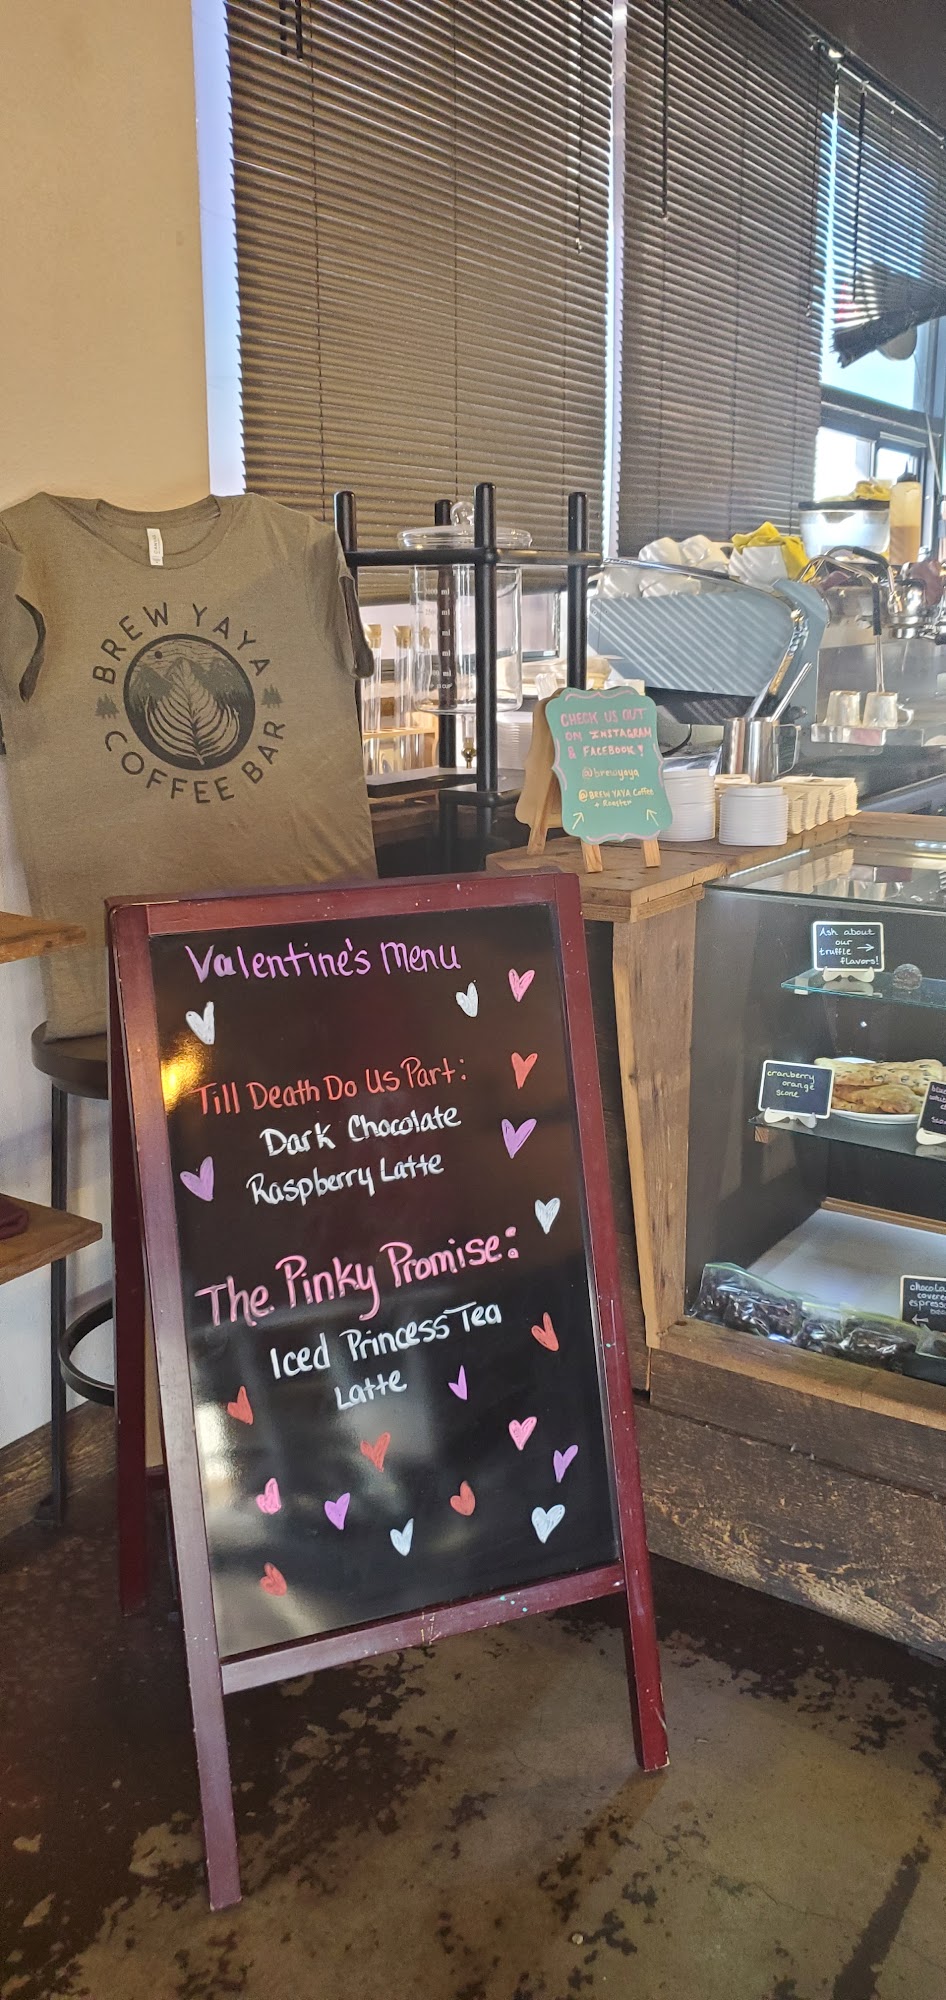 BREW YAYA
COFFEE BAR
CHECK US OUT
ON INSTAGRAM
& FACEBOOK!
@brewyaya
@BREW YAYA Coffee
+ Roaster
Valentine's Menu
Till Death Do Us Part:
Dark Chocolate
Raspberry Latte
The Pinky Promise:
Iced Princess Tea
Latte
Ask about
our
truffle
flavors!
cranberry
orange
scone
covered
espresso